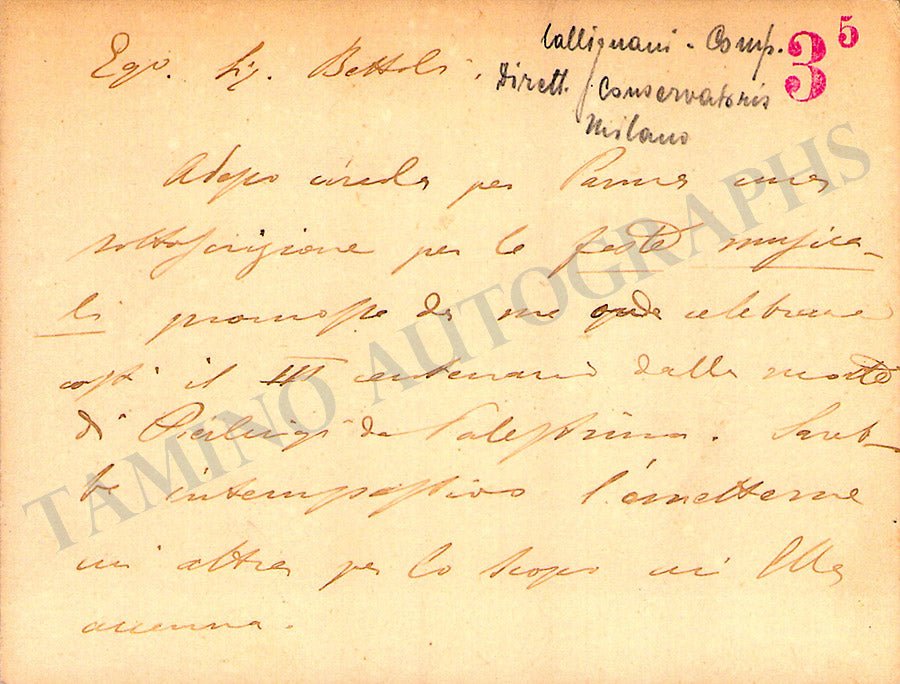 Gallignani - Comp.
Dirett. Conservatorio
Milano
3 5
Egr. Sig. Bettoli.
Adesso circola per Parma una
sottoscrizione per le feste musica-
li promosse da me onde celebrare
costì il III centenario dalla morte
di Pierluigi da Palestrina. Sareb-
be intempestivo l'emetterne
un' altra per lo scopo cui Ella
accenna.
TAMINO AUTOGRAPHS